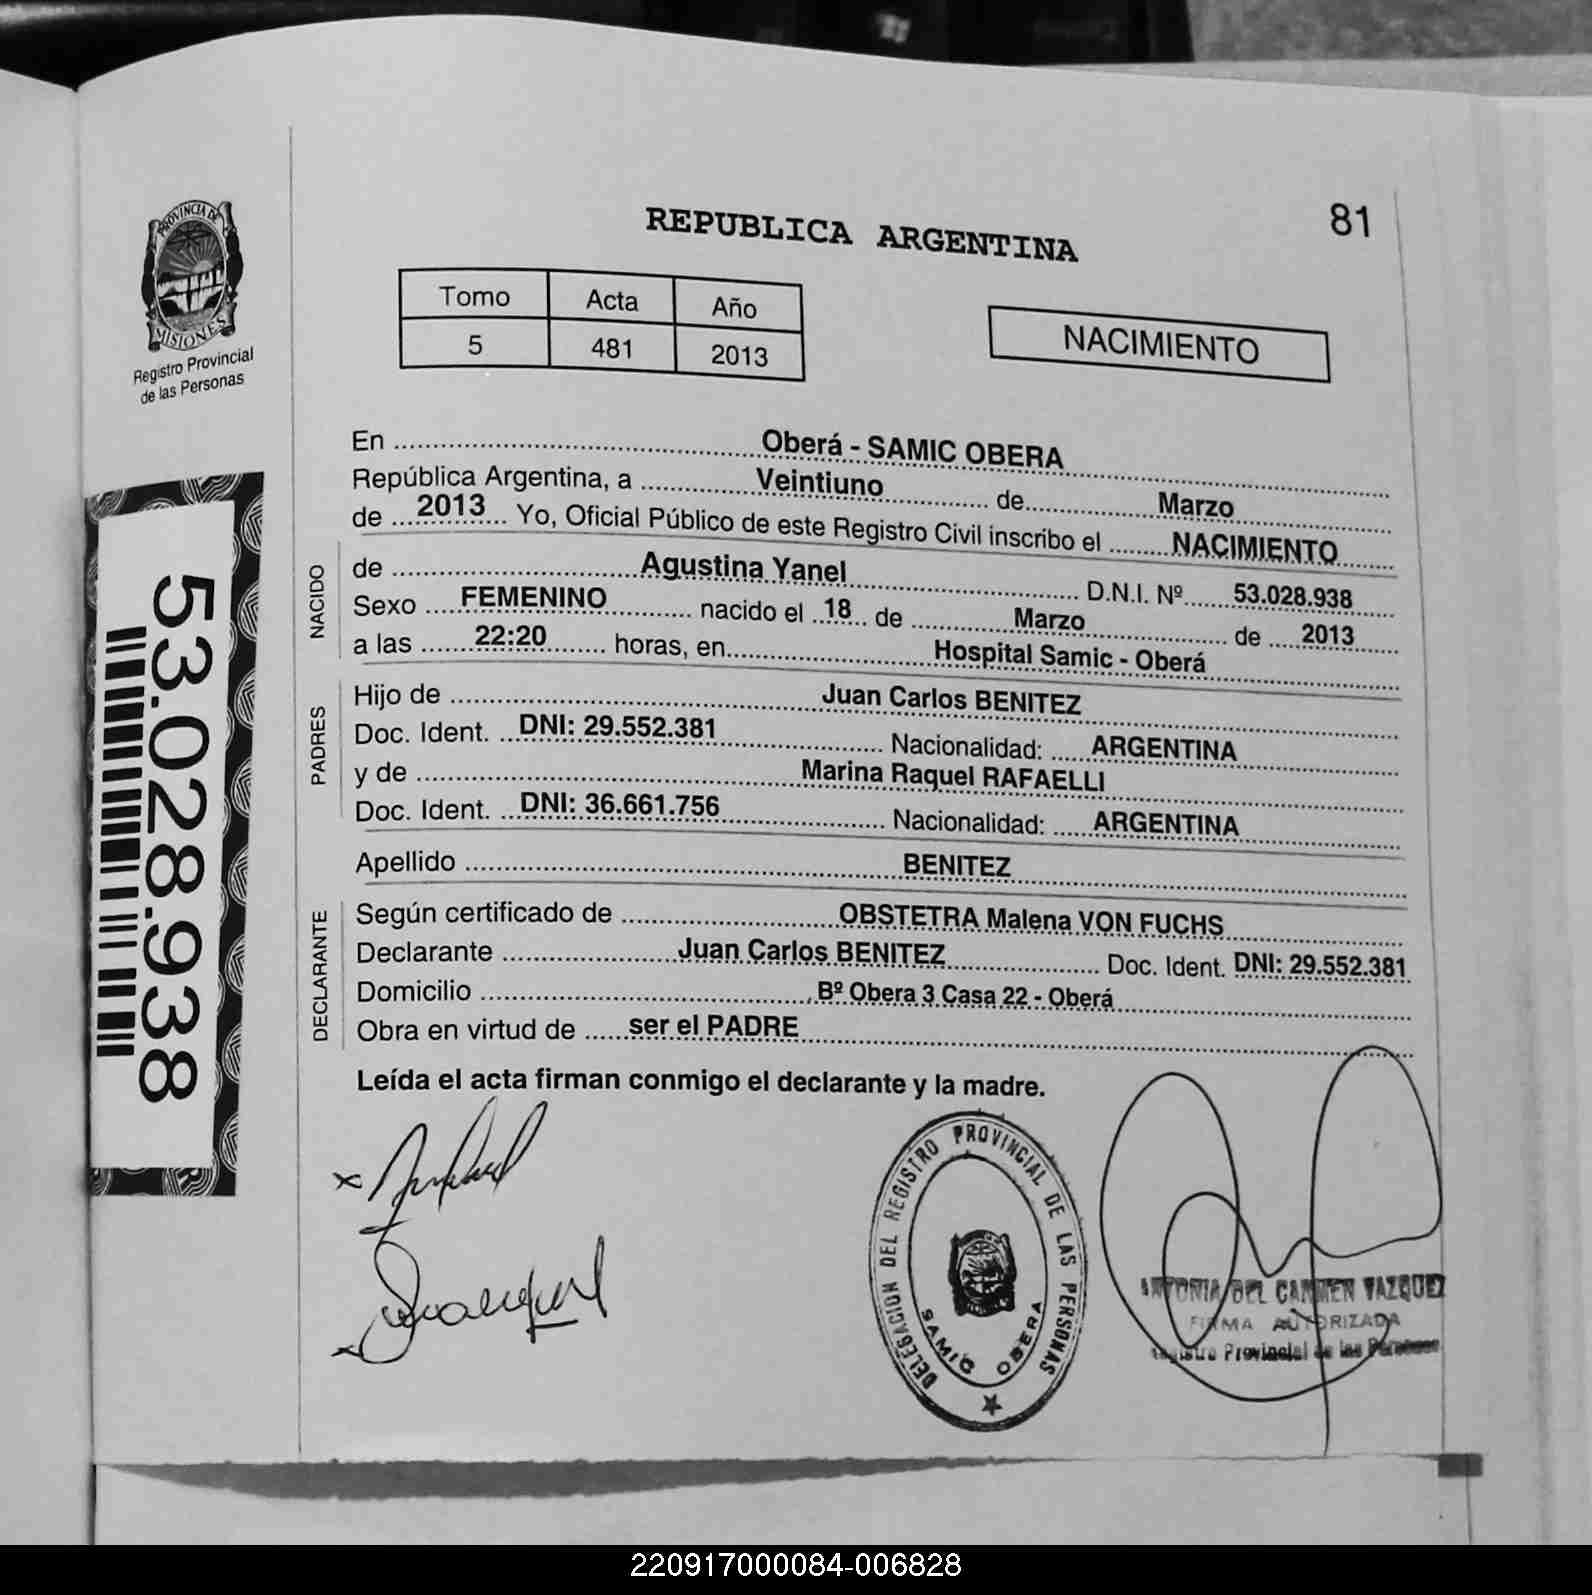 PROVINCIA DE
MISIONES
Registro Provincial
de las Personas
81
REPUBLICA ARGENTINA
Tomo Acta Año
5 481 2013
NACIMIENTO
En Oberá - SAMIC OBERA
República Argentina, a Veintiuno de Marzo
de 2013 Yo, Oficial Público de este Registro Civil inscribo el NACIMIENTO
NACIDO
de Agustina Yanel D.N.I. Nº 53.028.938
Sexo FEMENINO nacido el 18 de Marzo de 2013
a las 22:20 horas, en Hospital Samic - Oberá
PADRES
Hijo de Juan Carlos BENITEZ
Doc. Ident. DNI: 29.552.381 Nacionalidad: ARGENTINA
y de Marina Raquel RAFAELLI
Doc. Ident. DNI: 36.661.756 Nacionalidad: ARGENTINA
Apellido BENITEZ
DECLARANTE
Según certificado de OBSTETRA Malena VON FUCHS
Declarante Juan Carlos BENITEZ Doc. Ident. DNI: 29.552.381
Domicilio Bº Obera 3 Casa 22 - Oberá
Obra en virtud de ser el PADRE
Leída el acta firman conmigo el declarante y la madre.
53.028.938
DELEGACION DEL REGISTRO PROVINCIAL DE LAS PERSONAS
SAMIC OBERA
ANTONIA DEL CARMEN VAZQUEZ
FIRMA AUTORIZADA
Registro Provincial de las Personas
220917000084-006828